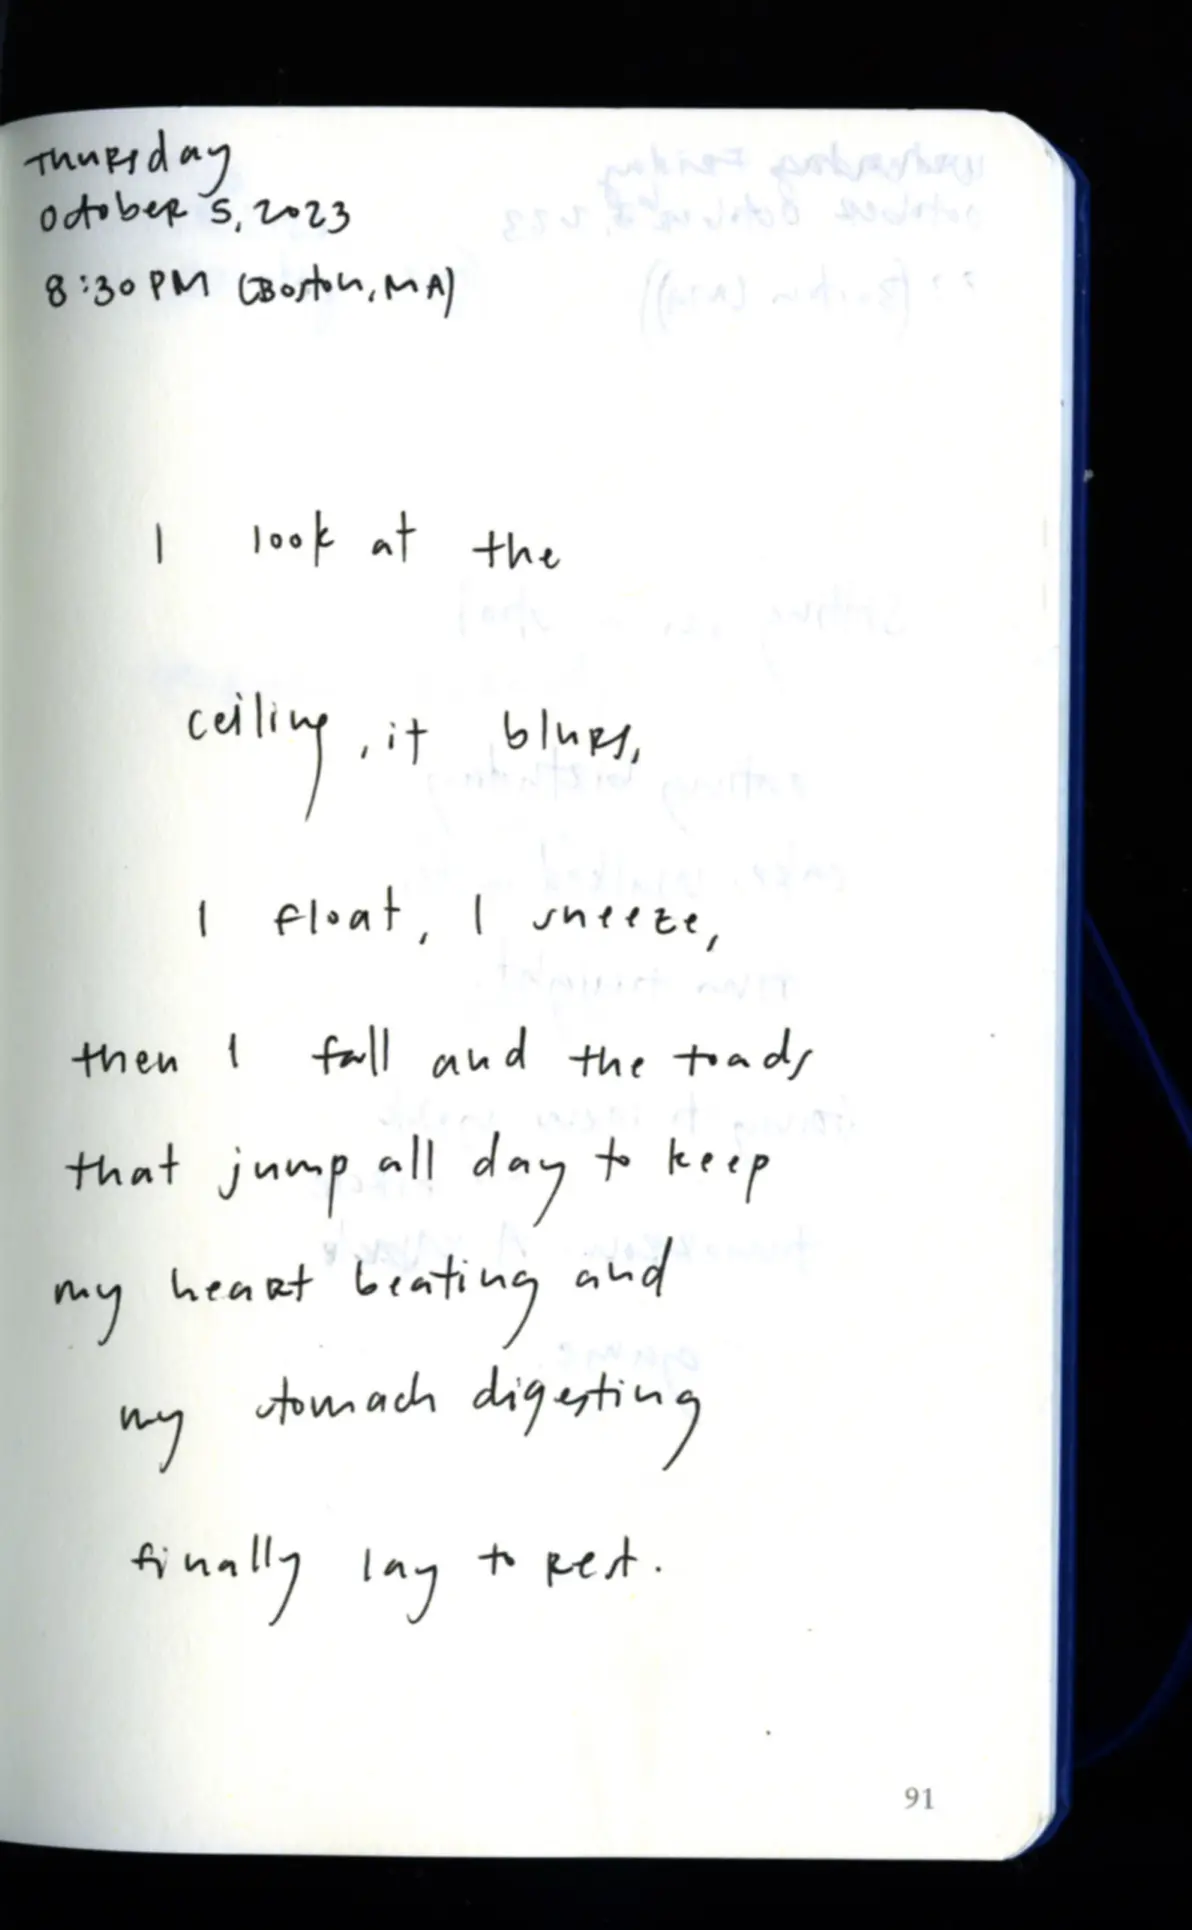 Thursday
October 5, 2023
8:30 PM (Boston, MA)
I look at the
ceiling, it blurs,
I float, I sneeze,
then I fall and the toads
that jump all day to keep
my heart beating and
my stomach digesting
finally lay to rest.
91